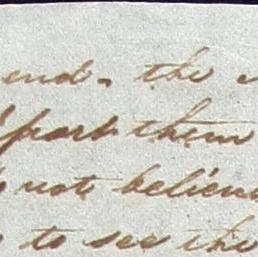 end. the
part them
not believe
to see the